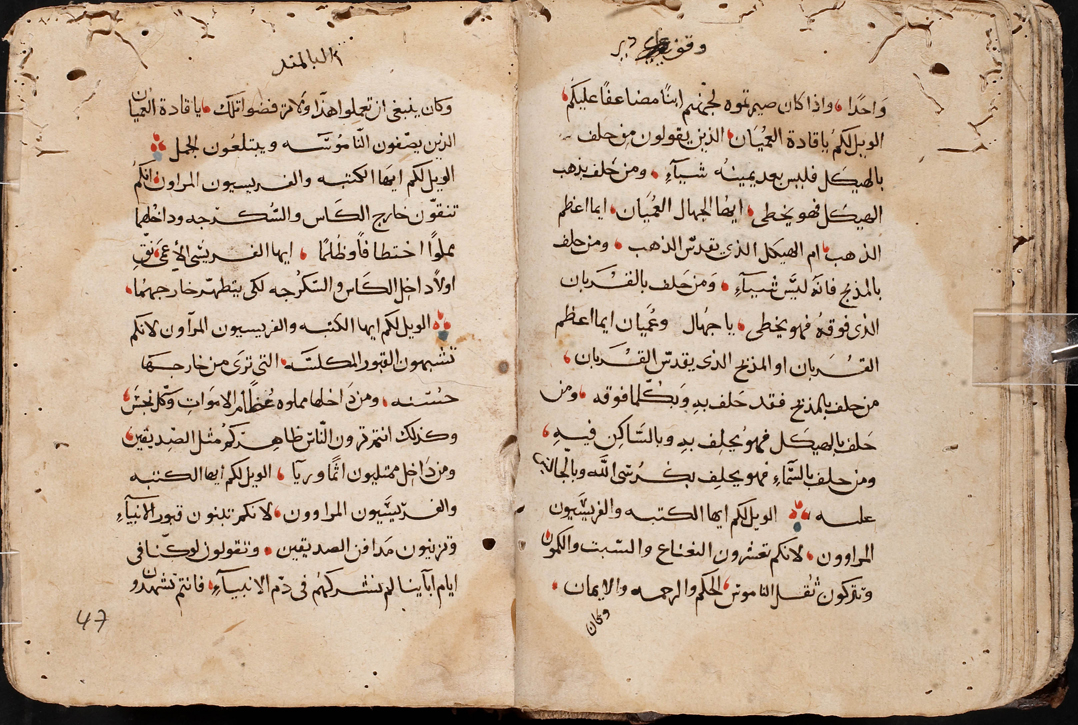 وقف دير
واحدًا واذا كان صيرتموه لجهنم ابنًا مضاعفًا عليكم
الويل لكم ياقادة العميان الذين يقولون من حلف
بالهيكل فليس بعد يمينه شيآء ومن حلف بذهب
الهيكل فهو يخطى ايها الجهال العميان ايما اعظم
الذهب ام الهيكل الذى يقدس الذهب ومن حلف
بالمذبح فانه ليس شيآء ومن حلف بالقربان
الذى فوقه فهو يخطى ياجهال وعميان ايما اعظم
القربان او المذبح الذى يقدس القربان
من حلف بالمذبح فقد حلف به وبكلما فوقه ومن
حلف بالهيكل فهو يحلف به وبالساكن فيه
ومن حلف بالسماء فهو يحلف بكرسى الله وبالجالس
عليه الويل لكم ايها الكتبه والفريسيون
المراوون لانكم تعشرون النعناع والسبت والكمون
وتتركون ثقل الناموس الحكم والرحمه والايمان
وكان
البالمند
وكان ينبغى ان تعملوا هذا ولا ترفضوا تلك ياقادة العميان
الذين يصفون الناموسه ويبتلعون الجمل
الويل لكم ايها الكتبه والفريسيون المراون انكم
تنقون خارج الكاس والسكرجه وداخلهما
مملوا اختطافا وظلمًا ايها الفريسى الاعمى نق
اولاً داخل الكاس والسكرجه لكى يتطهر خارجهما
الويل لكم ايها الكتبه والفريسيون المرآون لانكم
تشبهون القبور المكلسه التى ترى من خارجها
حسنه ومن داخلها مملوه عظام الاموات وكل نجس
وكذلك انتم ترون الناس ظاهركم مثل الصديقين
ومن داخل ممتليون اثمًا وريا الويل لكم ايها الكتبه
والفريسيون المراوون لانكم تبنون قبور الانبيآء
وتزينون مدافن الصديقين وتقولون لو كنا فى
ايام ابآينا لم نشركهم فى دم الانبيآء فانتم تشهدون
47